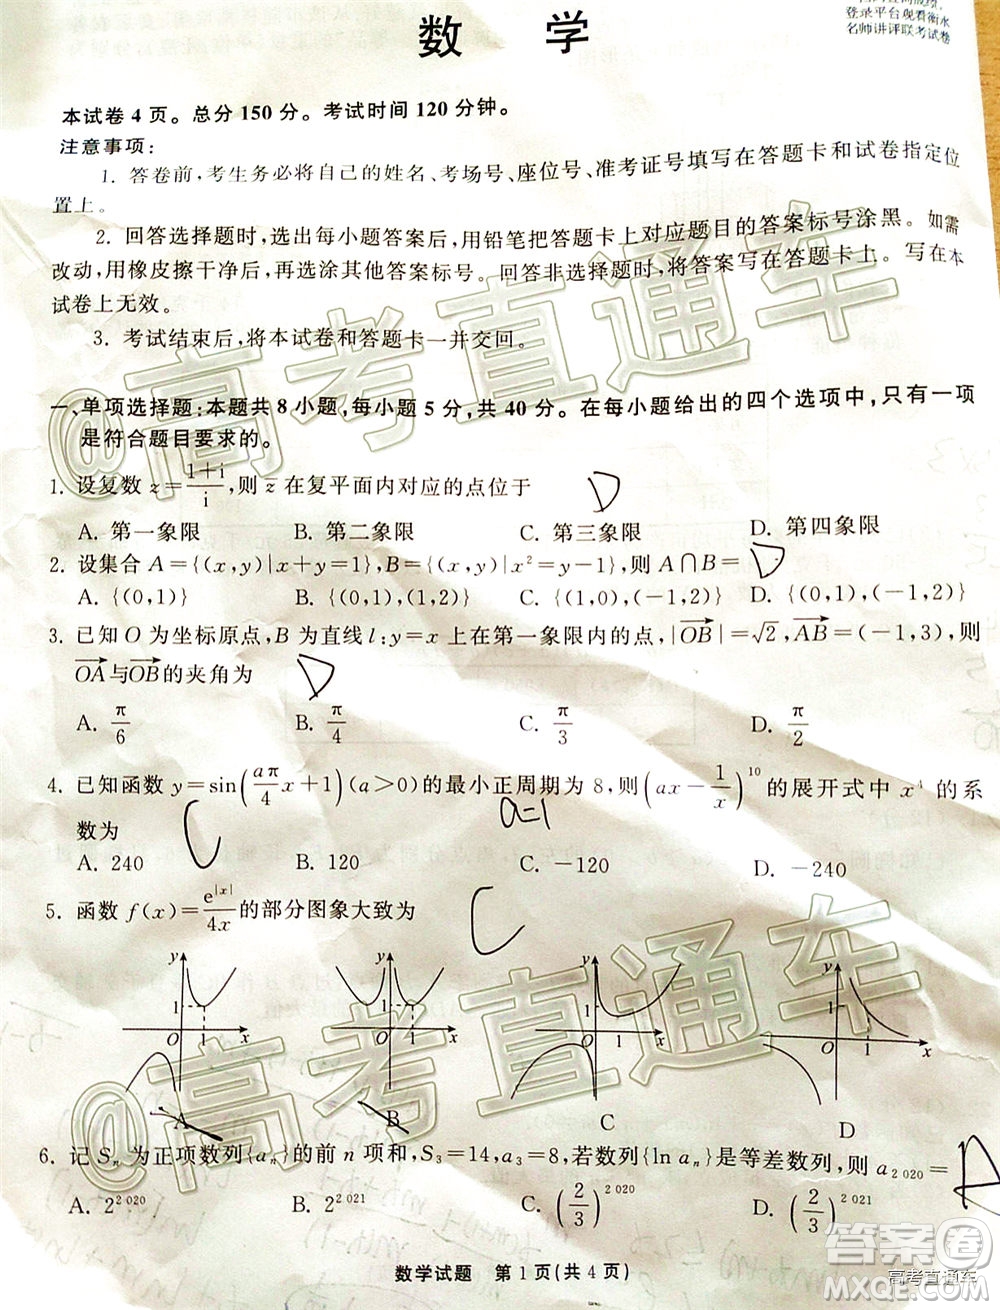 登录平台观看衡水
名师讲评联考试卷
数 学
本试卷4页。总分150分。考试时间120分钟。
注意事项:
1. 答卷前,考生务必将自己的姓名、考场号、座位号、准考证号填写在答题卡和试卷指定位
置上。
2. 回答选择题时,选出每小题答案后,用铅笔把答题卡上对应题目的答案标号涂黑。如需
改动,用橡皮擦干净后,再选涂其他答案标号。回答非选择题时,将答案写在答题卡上。写在本
试卷上无效。
3. 考试结束后,将本试卷和答题卡一并交回。
@高考直通车
一、单项选择题:本题共8小题,每小题5分,共40分。在每小题给出的四个选项中,只有一项
是符合题目要求的。
1. 设复数 z=\frac{1+i}{i},则 \overline{z} 在复平面内对应的点位于 D
A. 第一象限 B. 第二象限 C. 第三象限 D. 第四象限
2. 设集合 A={(x,y)|x+y=1},B={(x,y)|x²=y-1},则 A∩B= D
A. {(0,1)} B. {(0,1),(1,2)} C. {(1,0),(-1,2)} D. {(0,1),(-1,2)}
3. 已知 O 为坐标原点,B 为直线 l:y=x 上在第一象限内的点,|\overrightarrow{OB}|=√2,\overrightarrow{AB}=(-1,3),则
\overrightarrow{OA}与\overrightarrow{OB}的夹角为 D
A. \frac{π}{6} B. \frac{π}{4} C. \frac{π}{3} D. \frac{π}{2}
4. 已知函数 y=sin(\frac{aπ}{4}x+1)(a>0)的最小正周期为 8,则(ax-\frac{1}{x})^{10}的展开式中 x⁴ 的系
数为 C a=1
A. 240 B. 120 C. -120 D. -240
5. 函数 f(x)=\frac{e^{|x|}}{4x}的部分图象大致为 C
y 1 O 1 x
y 1 O 1 x
y O 1 x
y O 1 x
A B C D
@高考直通车
6. 记 Sₙ 为正项数列{aₙ}的前 n 项和,S₃=14,a₃=8,若数列{ln aₙ}是等差数列,则 a_{2 020}= A
A. 2^{2 020} B. 2^{2 021} C. (\frac{2}{3})^{2 020} D. (\frac{2}{3})^{2 021}
数学试题 第1页(共4页)
答案圈
高考直通车
MXQE.COM